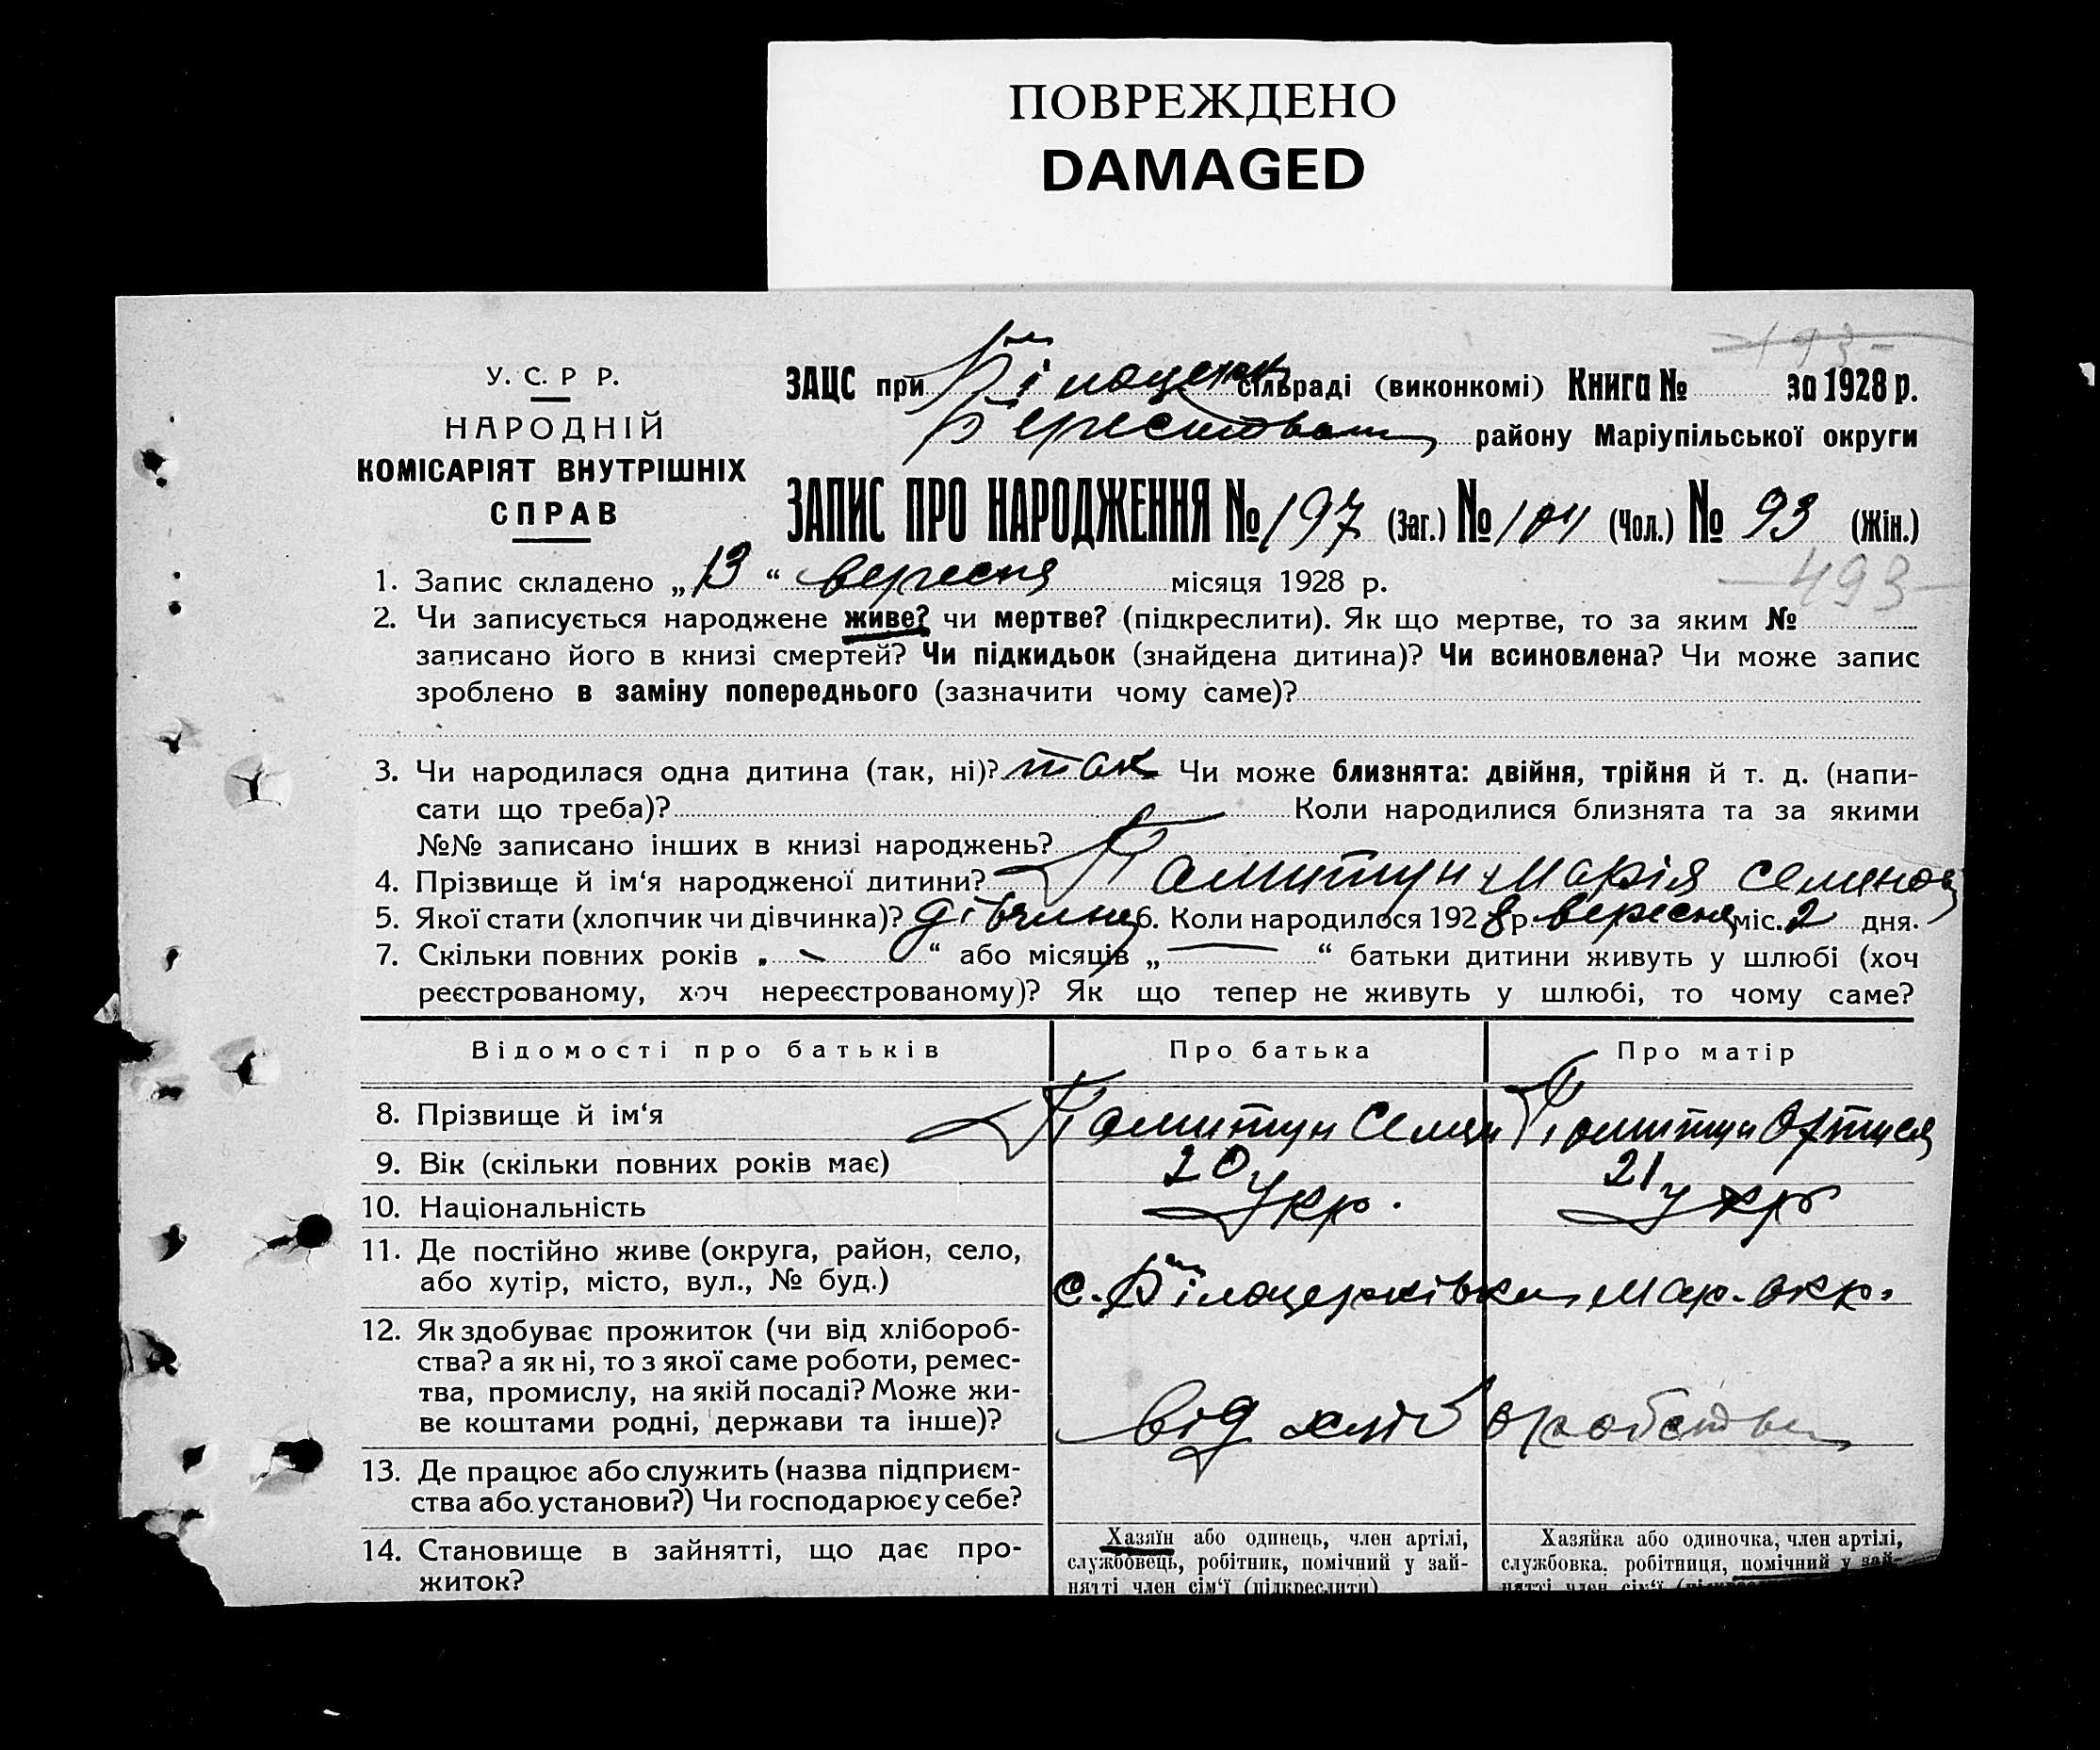 ПОВРЕЖДЕНО
DAMAGED
У. С. Р Р.
НАРОДНІЙ
КОМІСАРІЯТ ВНУТРІШНІХ
СПРАВ
193
ЗАЦС при Білоцерк сільраді (виконкомі) Книга № за 1928 р.
району Маріупільської округи
ЗАПИС ПРО НАРОДЖЕННЯ № 197 (Заг.) № 104 (Чол.) № 93 (Жін.)
1. Запис складено „13“ вересня місяця 1928 р.
493
2. Чи записується народжене живе? чи мертве? (підкреслити). Як що мертве, то за яким №
записано його в книзі смертей? Чи підкидьок (знайдена дитина)? Чи всиновлена? Чи може запис
зроблено в заміну попереднього (зазначити чому саме)?
3. Чи народилася одна дитина (так, ні)? так Чи може близнята: двійня, трійня й т. д. (напи-
сати що треба)? Коли народилися близнята та за якими
№№ записано інших в книзі народжень?
4. Прізвище й ім‘я народженої дитини? Марія
5. Якої стати (хлопчик чи дівчинка)? 6. Коли народилося 1928 р. вересня міс. 2 дня.
7. Скільки повних років „ “ або місяців „ “ батьки дитини живуть у шлюбі (хоч
реєстрованому, хоч нереєстрованому)? Як що тепер не живуть у шлюбі, то чому саме?
Відомості про батьків Про батька Про матір
8. Прізвище й ім‘я
9. Вік (скільки повних років має) 20 21
10. Національність Укр. Укр
11. Де постійно живе (округа, район, село,
або хутір, місто, вул., № буд.) с. Білоцерківка Мар. окр.
12. Як здобуває прожиток (чи від хлібороб-
ства? а як ні, то з якої саме роботи, ремес-
тва, промислу, на якій посаді? Може жи-
ве коштами родні, держави та інше)? від хліборобства
13. Де працює або служить (назва підприєм-
ства або установи?) Чи господарює у себе?
14. Становище в зайнятті, що дає про-
житок?
Хазяїн або одинець, член артілі,
службовець, робітник, помічний у зай-
нятті член сім‘ї (підкреслити)
Хазяйка або одиночка, член артілі,
службовка, робітниця, помічний у зай-
нятті член сім‘ї